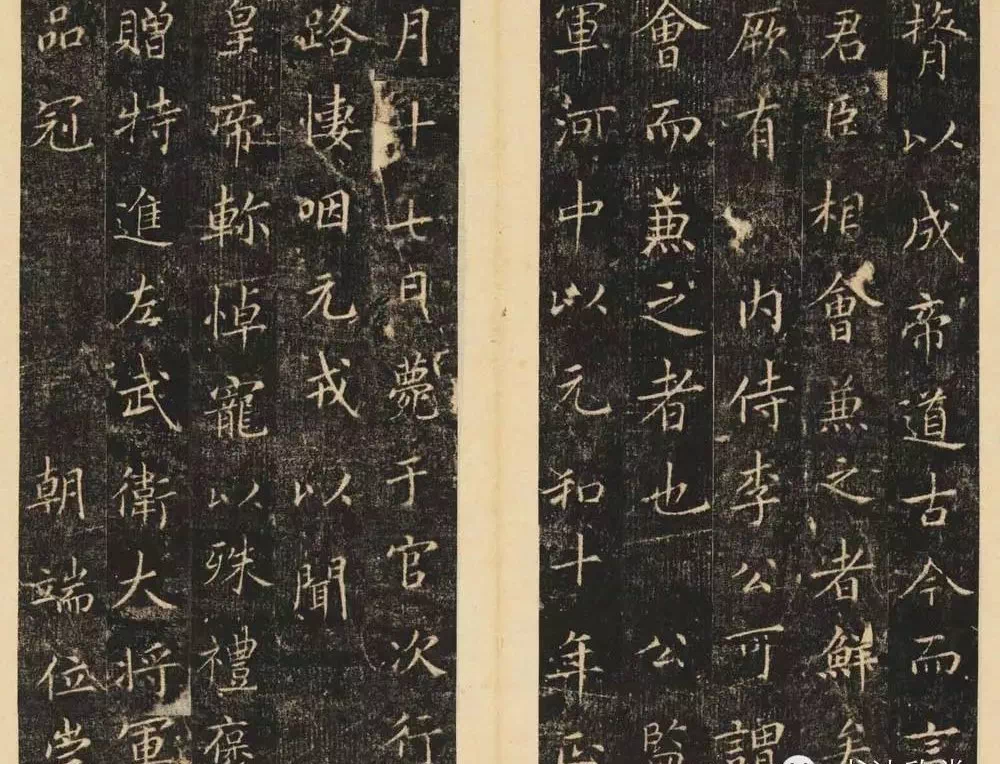 膂以成帝道古今而言
君臣相會兼之者鮮矣
厥有内侍李公可謂
會而兼之者也 公監
軍河中以元和十年正
月十七日薨于官次行
路悽咽元戎以聞
皇帝軫悼寵以殊禮葆
贈特進左武衛大将軍
品冠 朝端位崇